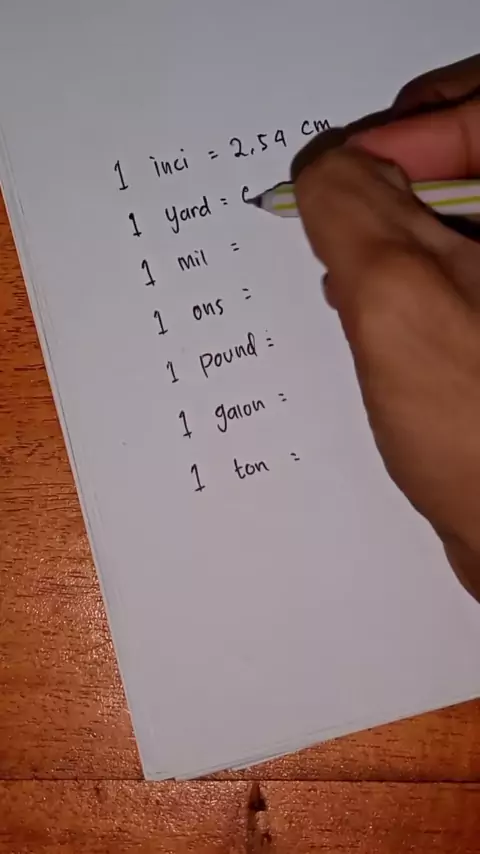 1 inci = 2.54 cm
1 yard =
1 mil =
1 ons =
1 pound =
1 galon =
1 ton =